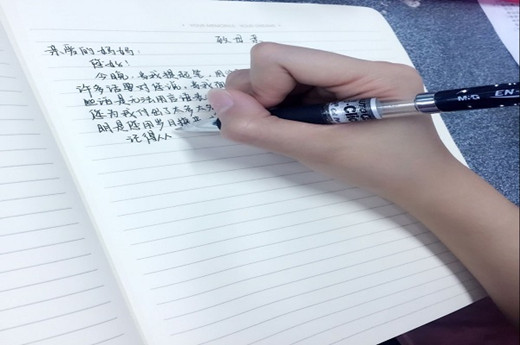 致母亲
亲爱的妈妈:
您好!
今晚,当我提起笔,用
许多话要对您说,当我
些话是无法用言语表
您为我付出了太多太
明是您用岁月换
记得从
M&G EN
Clic